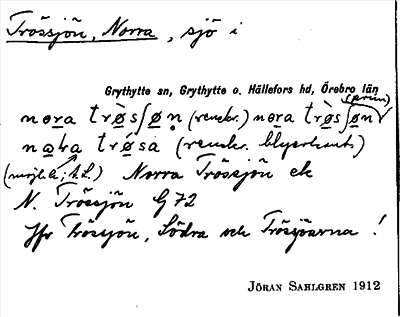 Trössjön, Norra, sjö i
Grythytte sn, Grythytte o. Hällefors hd, Örebro län
(prim)
nora trøsʃøn (renskr.) nora trøsʃøn
trøsa (renskr. blyertsants)
Norra Trössjön ek
N. Trössjön G 72
Jfr Trössjön, Södra och Trössjöarna!
JÖRAN SAHLGREN 1912